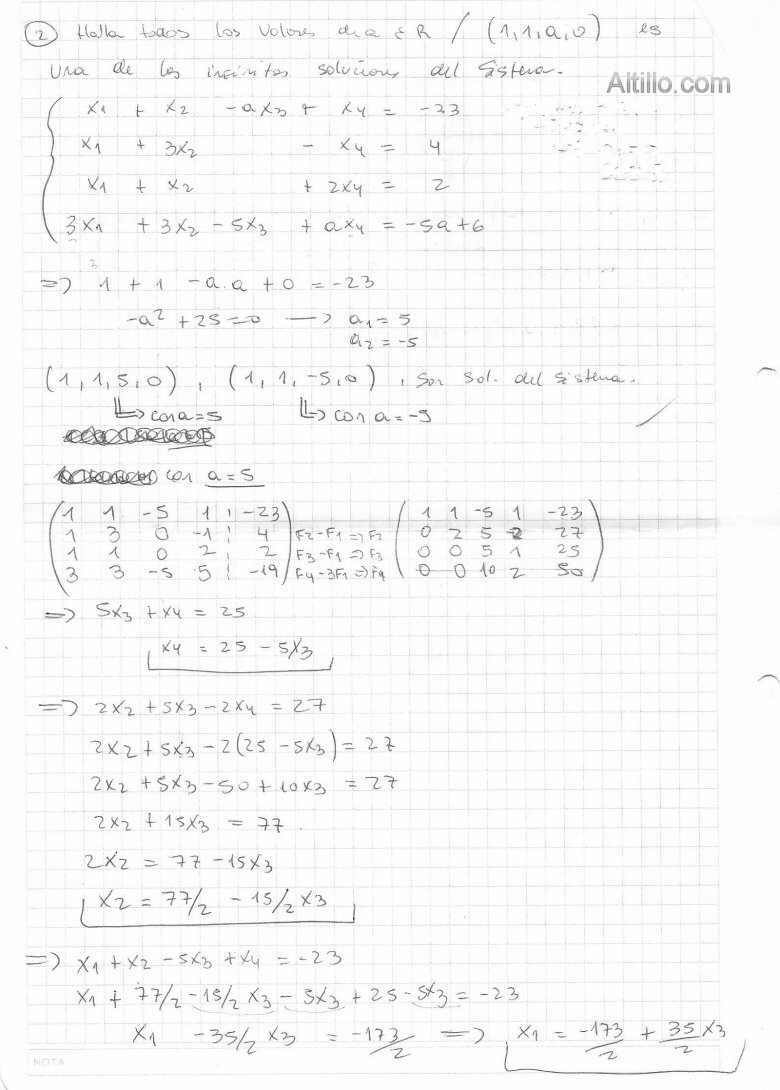 2 Halla todos los valores de a ∈ R / (1,1,a,0) es
una de las infinitas soluciones del sistema.
Altillo.com
x1 + x2 - ax3 + x4 = -23
x1 + 3x2 - x4 = 4
x1 + x2 + 2x4 = 2
3x1 + 3x2 - 5x3 + ax4 = -5a+6
=> 1 + 1 - a.a + 0 = -23
-a² + 25 = 0 → a1 = 5
a2 = -5
(1,1,5,0) , (1,1,-5,0) , son sol. del sistema.
con a=5 con a=-5
con a=5
1 1 -5 1 -23 1 1 -5 1 -23
1 3 0 -1 4 F2-F1 => F2 0 2 5 -2 27
1 1 0 2 2 F3-F1 => F3 0 0 5 1 25
3 3 -5 5 -19 F4-3F1 => F4 0 0 10 2 50
=> 5x3 + x4 = 25
x4 = 25 - 5x3
=> 2x2 + 5x3 - 2x4 = 27
2x2 + 5x3 - 2(25 - 5x3) = 27
2x2 + 5x3 - 50 + 10x3 = 27
2x2 + 15x3 = 77
2x2 = 77 - 15x3
x2 = 77/2 - 15/2 x3
=> x1 + x2 - 5x3 + x4 = -23
x1 + 77/2 - 15/2 x3 - 5x3 + 25 - 5x3 = -23
x1 - 35/2 x3 = -173/2 => x1 = -173/2 + 35/2 x3
NOTA